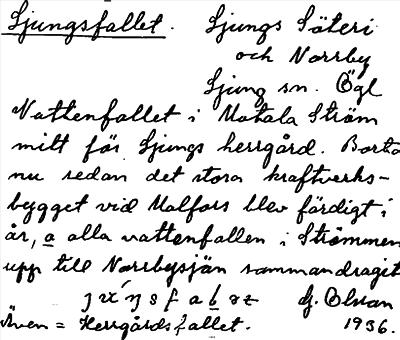 Ljungsfallet. Ljungs Säteri
och Norrby
Ljung sn. Ögl
Vattenfallet i Motala Ström
mitt för Ljungs herrgård. Borta
nu sedan det stora kraftverks-
bygget vid Malfors blev färdigt i
år, a alla vattenfallen i Strömmen
upp till Norrbysjön sammandragit
G. Olsson
Även = Herrgårdsfallet. 1936.